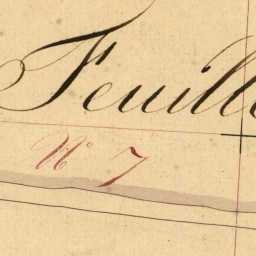 Feuill
N° 7